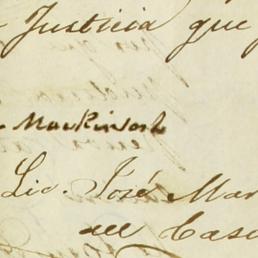 Justicia que
Mackintosh
Lic. José Mar
del Caso